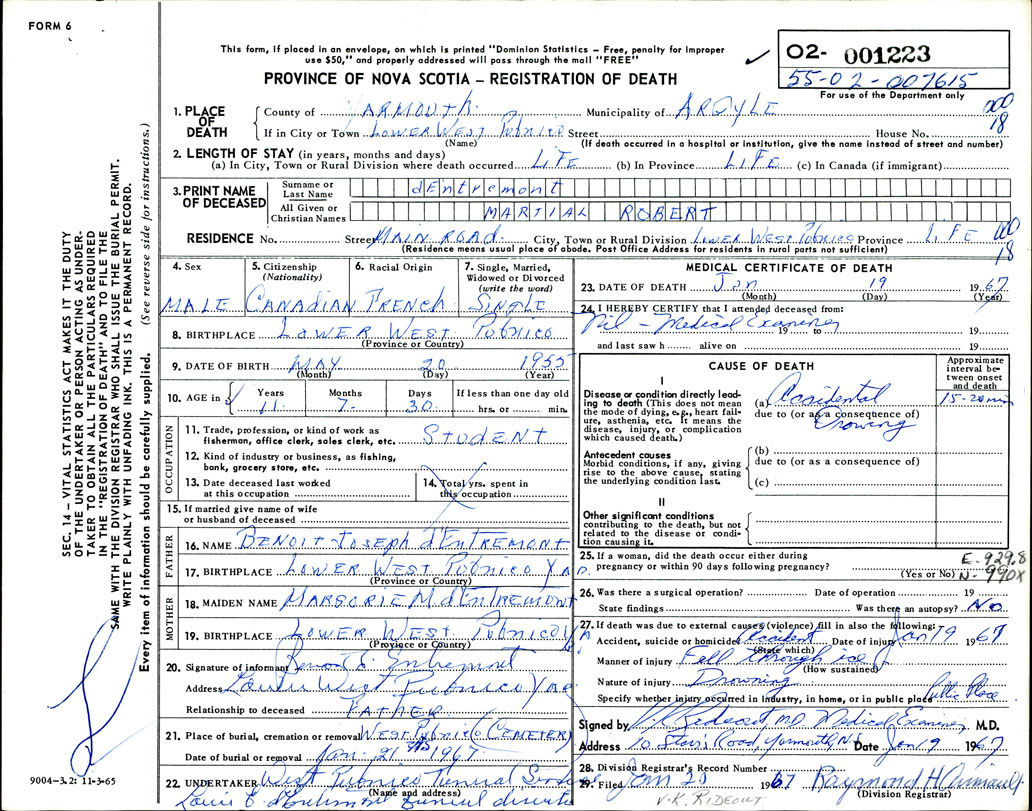 FORM 6
This form, if placed in an envelope, on which is printed "Dominion Statistics – Free, penalty for improper
use $50," and properly addressed will pass through the mail "FREE"
PROVINCE OF NOVA SCOTIA – REGISTRATION OF DEATH
02- 001223
55-02-007615
For use of the Department only
SEC. 14 – VITAL STATISTICS ACT MAKES IT THE DUTY
OF THE UNDERTAKER OR PERSON ACTING AS UNDER-
TAKER TO OBTAIN ALL THE PARTICULARS REQUIRED
IN THE "REGISTRATION OF DEATH" AND TO FILE THE
SAME WITH THE DIVISION REGISTRAR WHO SHALL ISSUE THE BURIAL PERMIT.
WRITE PLAINLY WITH UNFADING INK. THIS IS A PERMANENT RECORD.
Every item of information should be carefully supplied. (See reverse side for instructions.)
1. PLACE OF DEATH
County of YARMOUTH Municipality of ARGYLE
000
18
If in City or Town LOWER WEST PUBNICO Street House No.
(Name) (If death occurred in a hospital or institution, give the name instead of street and number)
2. LENGTH OF STAY (in years, months and days)
(a) In City, Town or Rural Division where death occurred LIFE (b) In Province LIFE (c) In Canada (if immigrant)
3. PRINT NAME OF DECEASED
Surname or Last Name dEntremont
All Given or Christian Names MARTIAL ROBERT
RESIDENCE No. Street MAIN ROAD City, Town or Rural Division LOWER WEST PUBNICO Province LIFE
000
18
(Residence means usual place of abode. Post Office Address for residents in rural parts not sufficient)
4. Sex MALE
5. Citizenship (Nationality) CANADIAN
6. Racial Origin FRENCH
7. Single, Married, Widowed or Divorced (write the word) SINGLE
8. BIRTHPLACE LOWER WEST PUBNICO
(Province or Country)
9. DATE OF BIRTH MAY 20 1955
(Month) (Day) (Year)
10. AGE in Years 11 Months 7 Days 30 If less than one day old hrs. or min.
OCCUPATION
11. Trade, profession, or kind of work as
fisherman, office clerk, sales clerk, etc. STUDENT
12. Kind of industry or business, as fishing,
bank, grocery store, etc.
13. Date deceased last worked
at this occupation
14. Total yrs. spent in
this occupation
15. If married give name of wife
or husband of deceased
FATHER
16. NAME BENOIT JOSEPH d'ENTREMONT
17. BIRTHPLACE LOWER WEST PUBNICO YAR.
(Province or Country)
MOTHER
18. MAIDEN NAME MARGORIE M dENTREMONT
19. BIRTHPLACE LOWER WEST PUBNICO
(Province or Country)
20. Signature of informant
Address Lower West Pubnico Yar
Relationship to deceased FATHER
21. Place of burial, cremation or removal WEST PUBNICO CEMETERY
Date of burial or removal Jan. 21 1967
22. UNDERTAKER West Pubnico Funeral Service
(Name and address)
9004-3.2: 11-3-65
MEDICAL CERTIFICATE OF DEATH
23. DATE OF DEATH Jan 19 1967
(Month) (Day) (Year)
24. I HEREBY CERTIFY that I attended deceased from:
Nil – Medical Examiner 19 to 19
and last saw h alive on 19
CAUSE OF DEATH
Approximate interval between onset and death
I
Disease or condition directly lead-
ing to death (This does not mean
the mode of dying, e.g., heart fail-
ure, asthenia, etc. It means the
disease, injury, or complication
which caused death.)
(a) Accidental 15-20 min
due to (or as a consequence of)
Drowning
Antecedent causes
Morbid conditions, if any, giving
rise to the above cause, stating
the underlying condition last.
(b)
due to (or as a consequence of)
(c)
II
Other significant conditions
contributing to the death, but not
related to the disease or condi-
tion causing it.
25. If a woman, did the death occur either during
pregnancy or within 90 days following pregnancy?
(Yes or No)
E-929.8
N-990X
26. Was there a surgical operation? Date of operation 19
State findings Was there an autopsy? No
27. If death was due to external causes (violence) fill in also the following:
Accident, suicide or homicide Accident Date of injury Jan 19 1967
(State which)
Manner of injury Fell through ice
(How sustained)
Nature of injury Drowning
Specify whether injury occurred in industry, in home, or in public place Public Place
Signed by V.K. Rideout MD Medical Examiner M.D.
Address 10 Starrs Road, Yarmouth, N.S. Date Jan 19 1967
28. Division Registrar's Record Number
29. Filed Jan 20 1967 Raymond H
(Division Registrar)
V.K. RIDEOUT